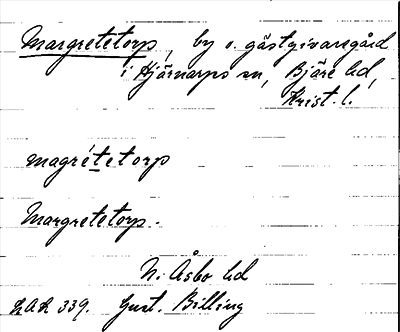 Margretetorp, by o. gästgivaregård
i Hjärnarps sn, Bjäre hd,
Krist. l.
magrétetorp
Margretetorp.
N. Åsbo hd
LAL 339. Gust. Billing